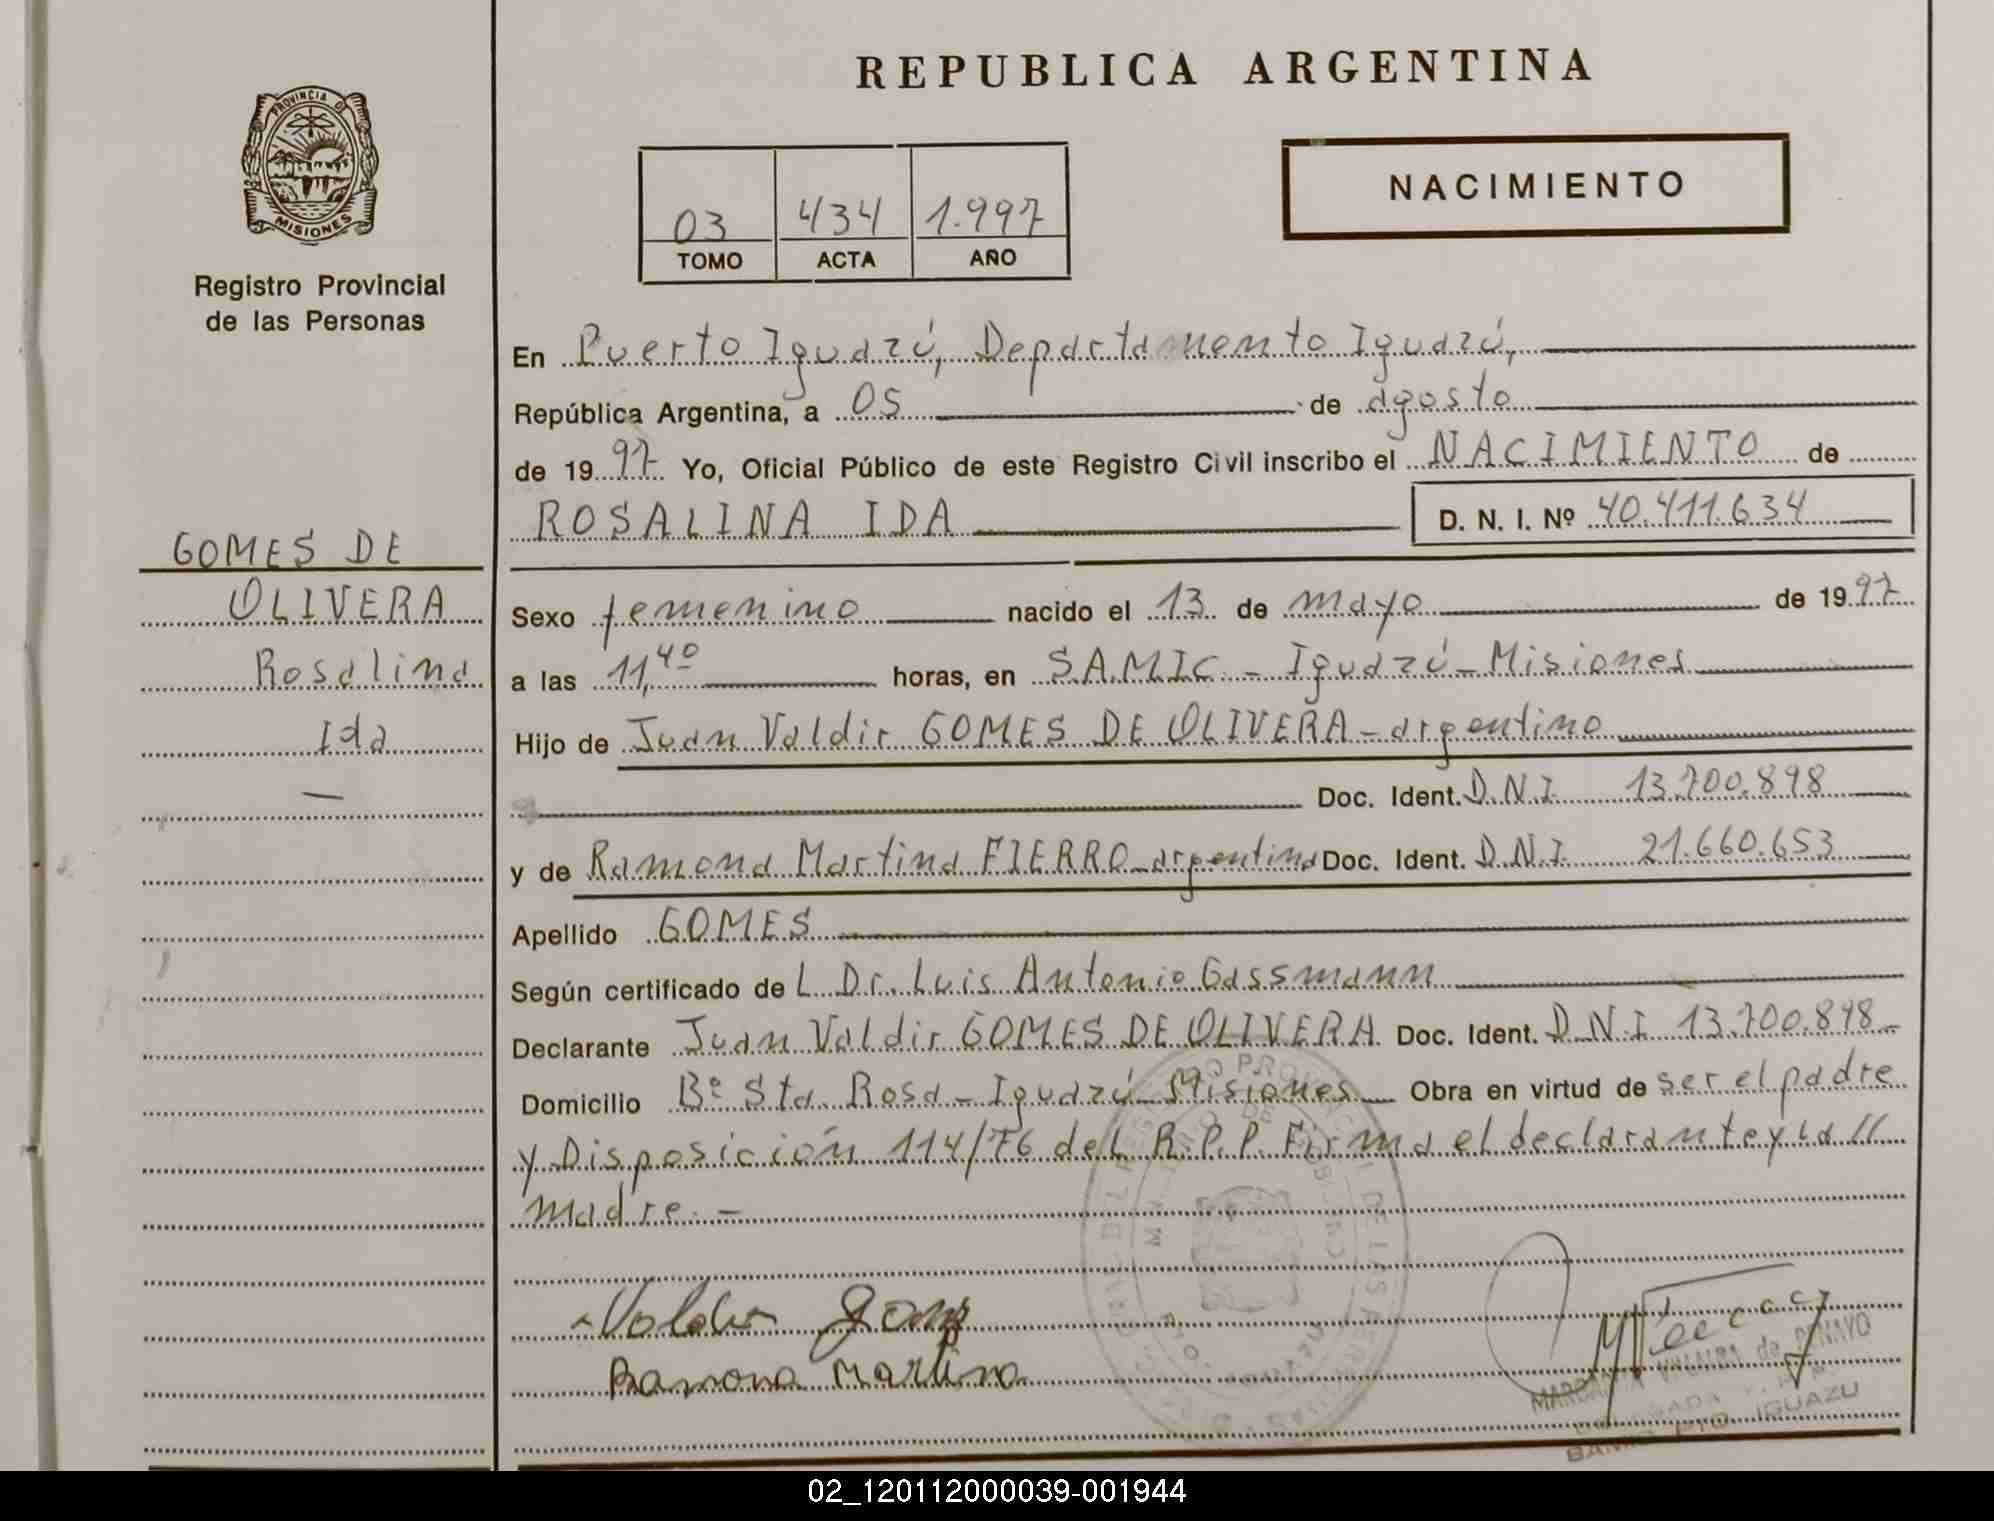 REPUBLICA ARGENTINA
PROVINCIA DE
MISIONES
Registro Provincial
de las Personas
03 434 1.997
TOMO ACTA AÑO
NACIMIENTO
GOMES DE
OLIVERA
Rosalina
Ida
En Puerto Iguazú, Departamento Iguazú,
República Argentina, a 05 de agosto
de 1997 Yo, Oficial Público de este Registro Civil inscribo el NACIMIENTO de
ROSALINA IDA D. N. I. Nº 40.411.634
Sexo femenino nacido el 13 de mayo de 1997
a las 11,40 horas, en S.A.M.I.C. - Iguazú - Misiones
Hijo de Juan Valdir GOMES DE OLIVERA - argentino
Doc. Ident. D.N.I. 13.700.898
y de Ramona Martina FIERRO - argentina Doc. Ident. D.N.I. 21.660.653
Apellido GOMES
Según certificado de L Dr. Luis Antonio Gassmann
Declarante Juan Valdir GOMES DE OLIVERA Doc. Ident. D.N.I 13.700.898 -
Domicilio Bº Sta. Rosa - Iguazú - Misiones Obra en virtud de ser el padre
y Disposición 114/76 del R.P.P. Firma el declarante y la //
madre. -
Valdir Gomes
Ramona Martina
MARGARITA de PENAYO
PTO. IGUAZU
02_120112000039-001944